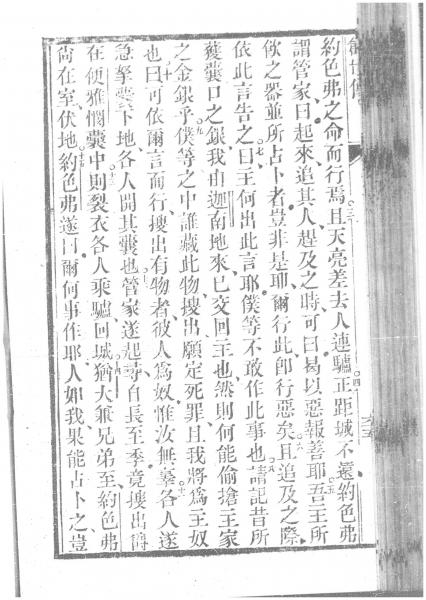 創世傳
約色弗之命而行焉、三且天亮差去人連驢、四正距城不遠、約色弗
謂管家曰起來追其人、趕及之時、可曰曷以惡報善耶、五吾主所
飲之器並所占卜者、豈非是耶、爾行此、卽行惡矣、六且追及之際、
依此言告之、七曰主何出此言耶、僕等不敢作此事也、八請記昔所
獲囊口之銀、我由迦南地來、已交回主也、然則何能偷搶主家
之金銀乎、九僕等之中、誰藏此物、搜出願定死罪、且我將爲主奴
也、十曰可依爾言而行、搜出有物者、彼人爲奴、惟汝無辜、十一各人遂
急拏囊下地、各人開其囊也、十二管家遂起尋自長至季、竟搜出爵
在便雅憫囊中、十三則裂衣、各人乘驢回城、十四猶大兼兄弟至約色弗
尙在室、伏地、十五約色弗遂曰爾何事作耶、人如我果能占卜之、豈
六五